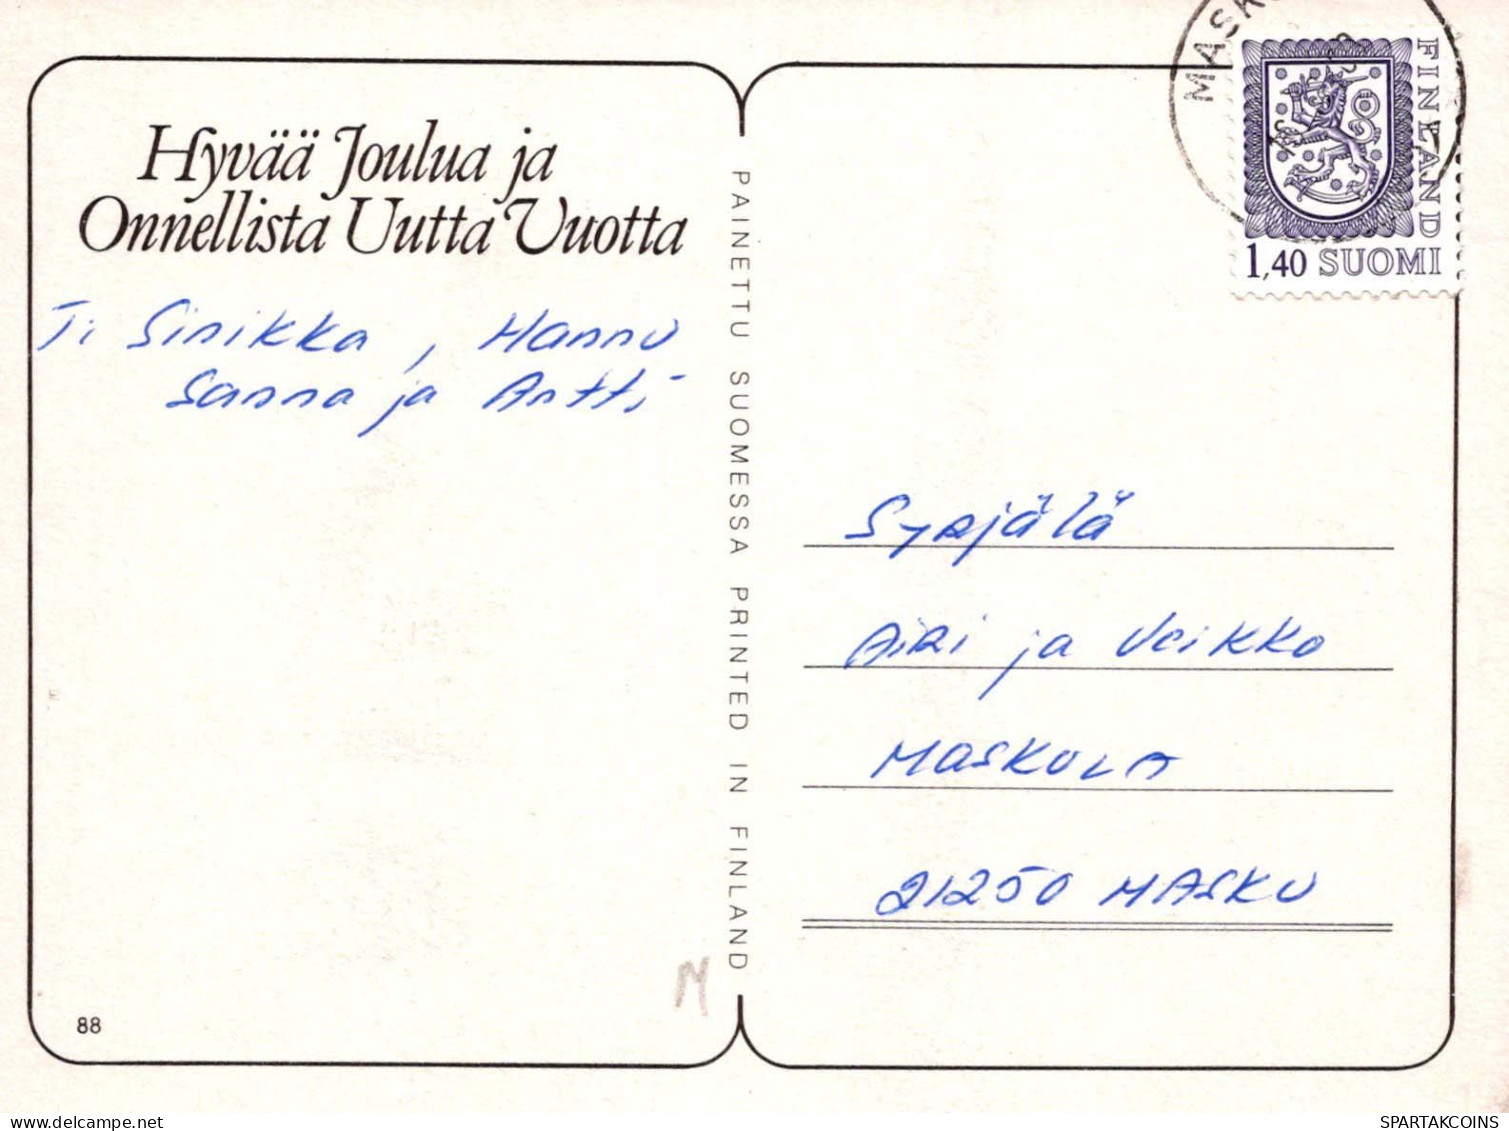 Hyvää Joulua ja
Onnellista Uutta Vuotta
T: Sinikka, Hannu
Sanna ja Antti
88
PAINETTU SUOMESSA PRINTED IN FINLAND
M
MASK
FINLAND
1,40 SUOMI
Syrjälä
Airi ja Veikko
MASKULA
21250 MASKU
SPARTAKCOINS